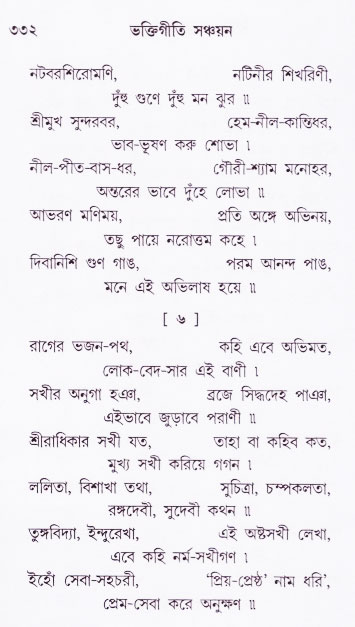 ৩৩২ ভক্তিগীতি সঞ্চয়ন
নটবরশিরোমণি, নটিনীর শিখরিণী,
দুঁহু গুণে দুঁহু মন ঝুর ॥
শ্রীমুখ সুন্দরবর, হেম-নীল-কান্তিধর,
ভাব-ভূষণ করু শোভা ।
নীল-পীত-বাস-ধর, গৌরী-শ্যাম মনোহর,
অন্তরের ভাবে দুঁহে লোভা ॥
আভরণ মণিময়, প্রতি অঙ্গে অভিনয়,
তছু পায়ে নরোত্তম কহে ।
দিবানিশি গুণ গাঙ, পরম আনন্দ পাঙ,
মনে এই অভিলাষ হয়ে ॥
[ ৬ ]
রাগের ভজন-পথ, কহি এবে অভিমত,
লোক-বেদ-সার এই বাণী ।
সখীর অনুগা হঞা, ব্রজে সিদ্ধদেহ পাঞা,
এইভাবে জুড়াবে পরাণী ॥
শ্রীরাধিকার সখী যত, তাহা বা কহিব কত,
মুখ্য সখী করিয়ে গগন ।
ললিতা, বিশাখা তথা, সুচিত্রা, চম্পকলতা,
রঙ্গদেবী, সুদেবী কথন ॥
তুঙ্গবিদ্যা, ইন্দুরেখা, এই অষ্টসখী লেখা,
এবে কহি নর্ম-সখীগণ ।
ইহোঁ সেবা-সহচরী, ‘প্রিয়-প্রেষ্ঠ’ নাম ধরি’,
প্রেম-সেবা করে অনুক্ষণ ॥